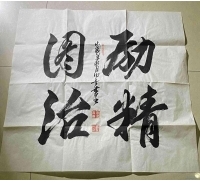 励精
图治